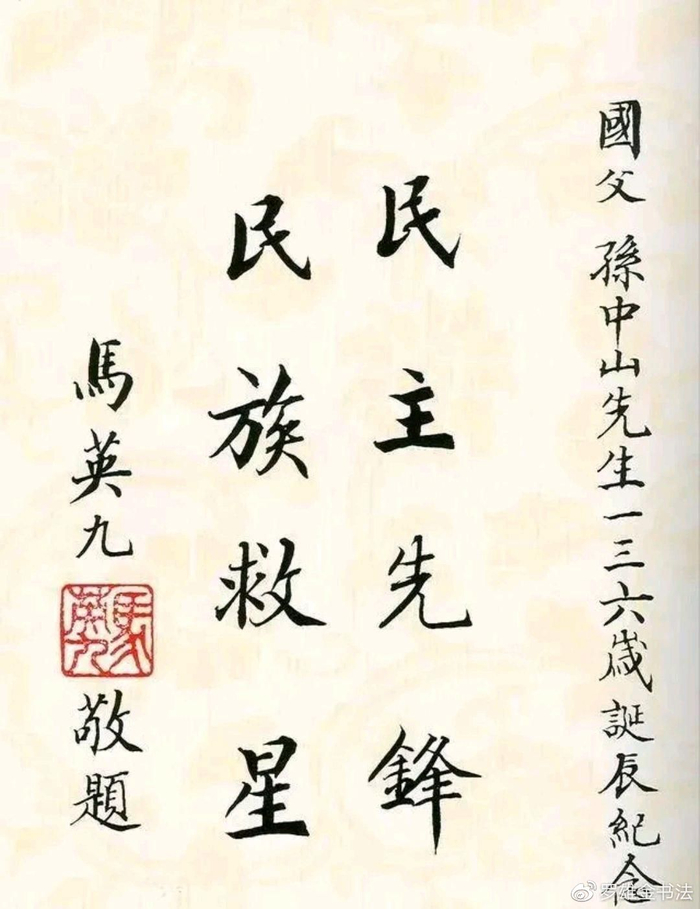 國父 孫中山先生一三六歲誕辰紀念
民主先鋒
民族救星
馬英九
馬英九
敬題
罗雄金书法